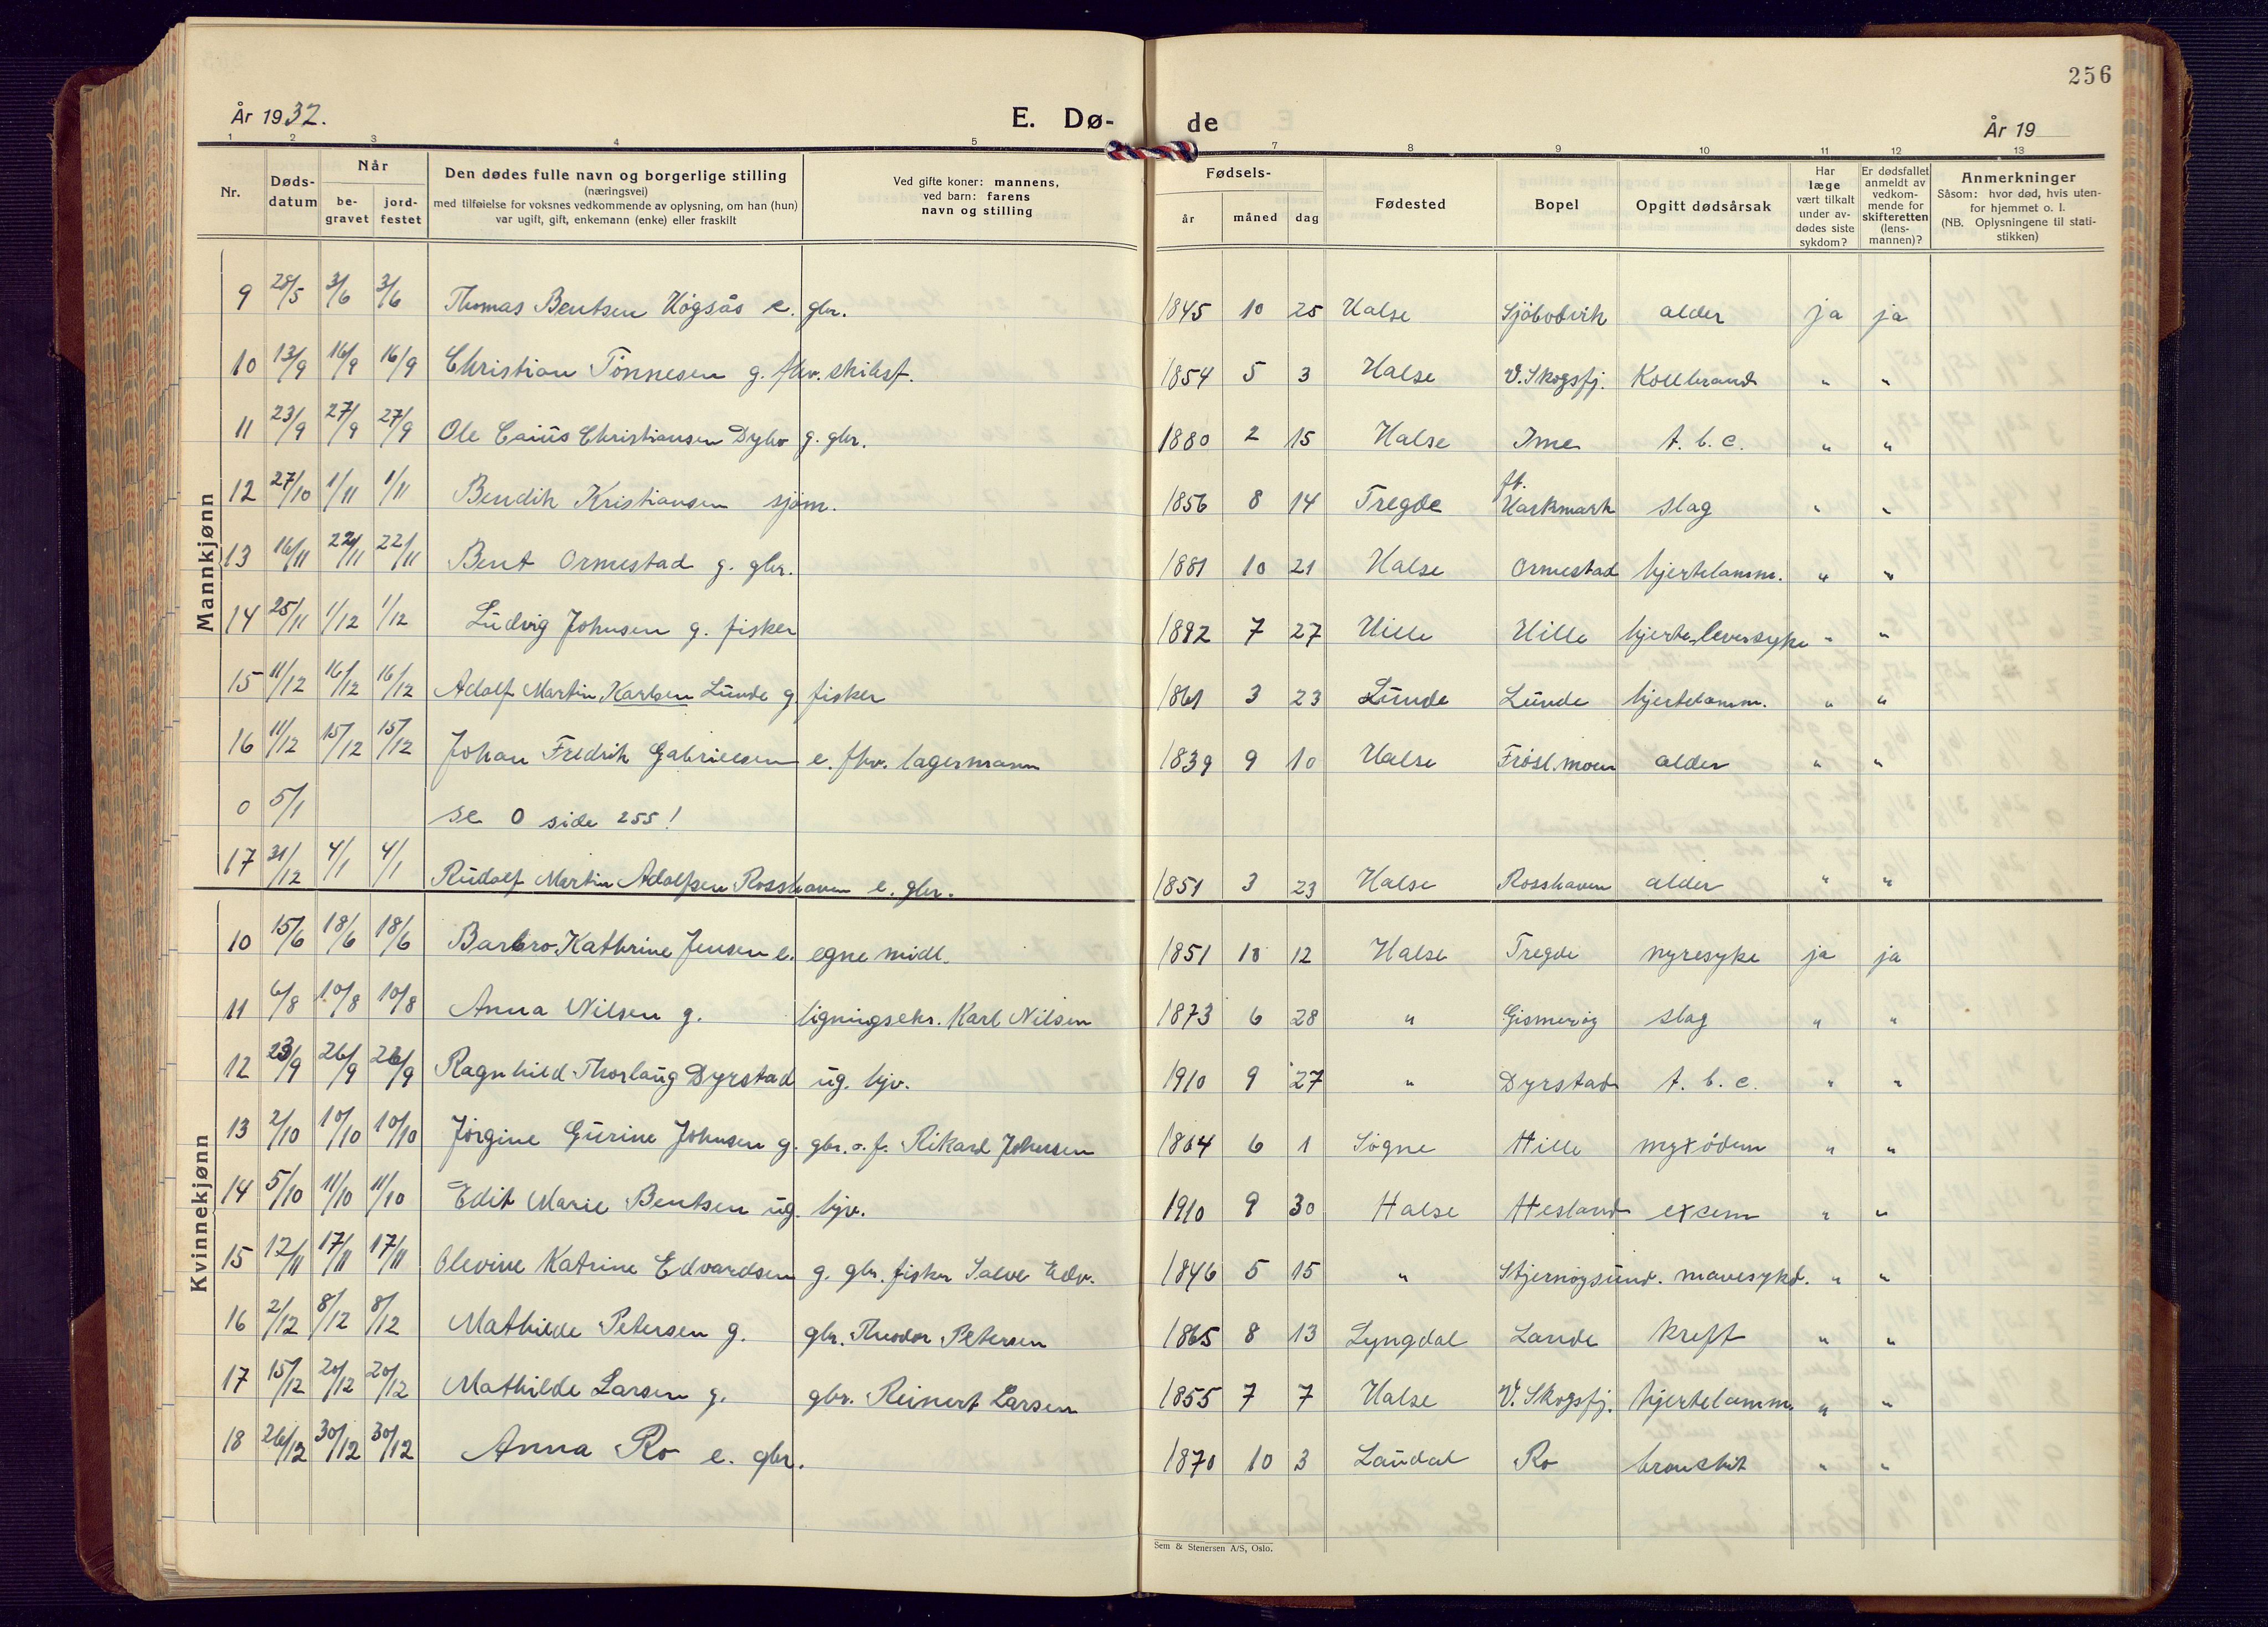 256
År 1932.
E. Dø-
de
År 19
1 2 3 4 5 7 8 9 10 11 12 13
Nr.
Døds-
datum
Når
be-
gravet
jord-
festet
Den dødes fulle navn og borgerlige stilling
(næringsvei)
med tilføielse for voksnes vedkommende av oplysning, om han (hun)
var ugift, gift, enkemann (enke) eller fraskilt
Ved gifte koner: mannens,
ved barn: farens
navn og stilling
Fødsels-
år
måned
dag
Fødested
Bopel
Opgitt dødsårsak
Har
læge
vært tilkalt
under av-
dødes siste
sykdom?
Er dødsfallet
anmeldt av
vedkom-
mende for
skifteretten
(lens-
mannen)?
Anmerkninger
Såsom: hvor død, hvis uten-
for hjemmet o. l.
(NB. Oplysningene til stati-
stikken)
Mannkjønn
9 28/5 3/6 3/6 Thomas Bentsen Högsås e. gbr. 1845 10 25 Halse Sjöbodvik alder ja ja
10 13/9 16/9 16/9 Christian Tönnesen g. fhv. skibsf. 1854 5 3 Halse V. Skogsfj. Kollbrand " "
11 23/9 27/9 27/9 Ole Caius Christiansen Dybo g. gbr. 1880 2 15 Halse Ime t. b. c. " "
12 27/10 1/11 1/11 Bendik Kristiansen sjöm. 1856 8 14 Tregde ft. Harkmark slag " "
13 16/11 22/11 22/11 Bent Ormestad g. gbr. 1881 10 21 Halse Ormestad hjertelamm. " "
14 25/11 1/12 1/12 Ludvig Johnsen g. fisker 1892 7 27 Hille Hille hjerte, leversyke " "
15 11/12 16/12 16/12 Adolf Martin Karlsen Lunde g. fisker 1861 3 23 Lunde Lunde hjertelamm. " "
16 11/12 15/12 15/12 Johan Fredrik Gabrielsen e. fhv. lagermann 1839 9 10 Halse Frösl.moen alder " "
0 5/1 se 0 side 255!
17 31/12 4/1 4/1 Rudolf Martin Adolfsen Rosshaven e. gbr. 1851 3 23 Halse Rosshaven alder " "
Kvinnekjønn
10 15/6 18/6 18/6 Barbro Kathrine Jensen e. egne midl. 1851 10 12 Halse Tregde nyresyke ja ja
11 6/8 10/8 10/8 Anna Nilsen g. ligningsekr. Karl Nilsen 1873 6 28 " Gismeröy slag " "
12 23/9 26/9 26/9 Ragnhild Thorlaug Dyrstad ug. hjv. 1910 9 27 " Dyrstad t. b. c. " "
13 2/10 10/10 10/10 Jörgine Gurine Johnsen g. gbr. o. f. Rikard Johnsen 1864 6 1 Sögne Hille myxödem " "
14 5/10 11/10 11/10 Edit Marie Bentsen ug. hjv. 1910 9 30 Halse Hesland excem " "
15 12/11 17/11 17/11 Olevine Katrine Edvardsen g. gbr. fisker Salve Edv. 1846 5 15 " Stjernöysund. mavesykd. " "
16 2/12 8/12 8/12 Mathilde Petersen g. gbr. Theodor Petersen 1865 8 13 Lyngdal Lande kreft " "
17 15/12 20/12 20/12 Mathilde Larsen g. gbr. Reinert Larsen 1855 7 7 Halse V. Skogsfj. hjertelamm " "
18 26/12 30/12 30/12 Anna Ro e. gbr. 1870 10 3 Laudal Ro bronchit " "
Sem & Stenersen A/S, Oslo.